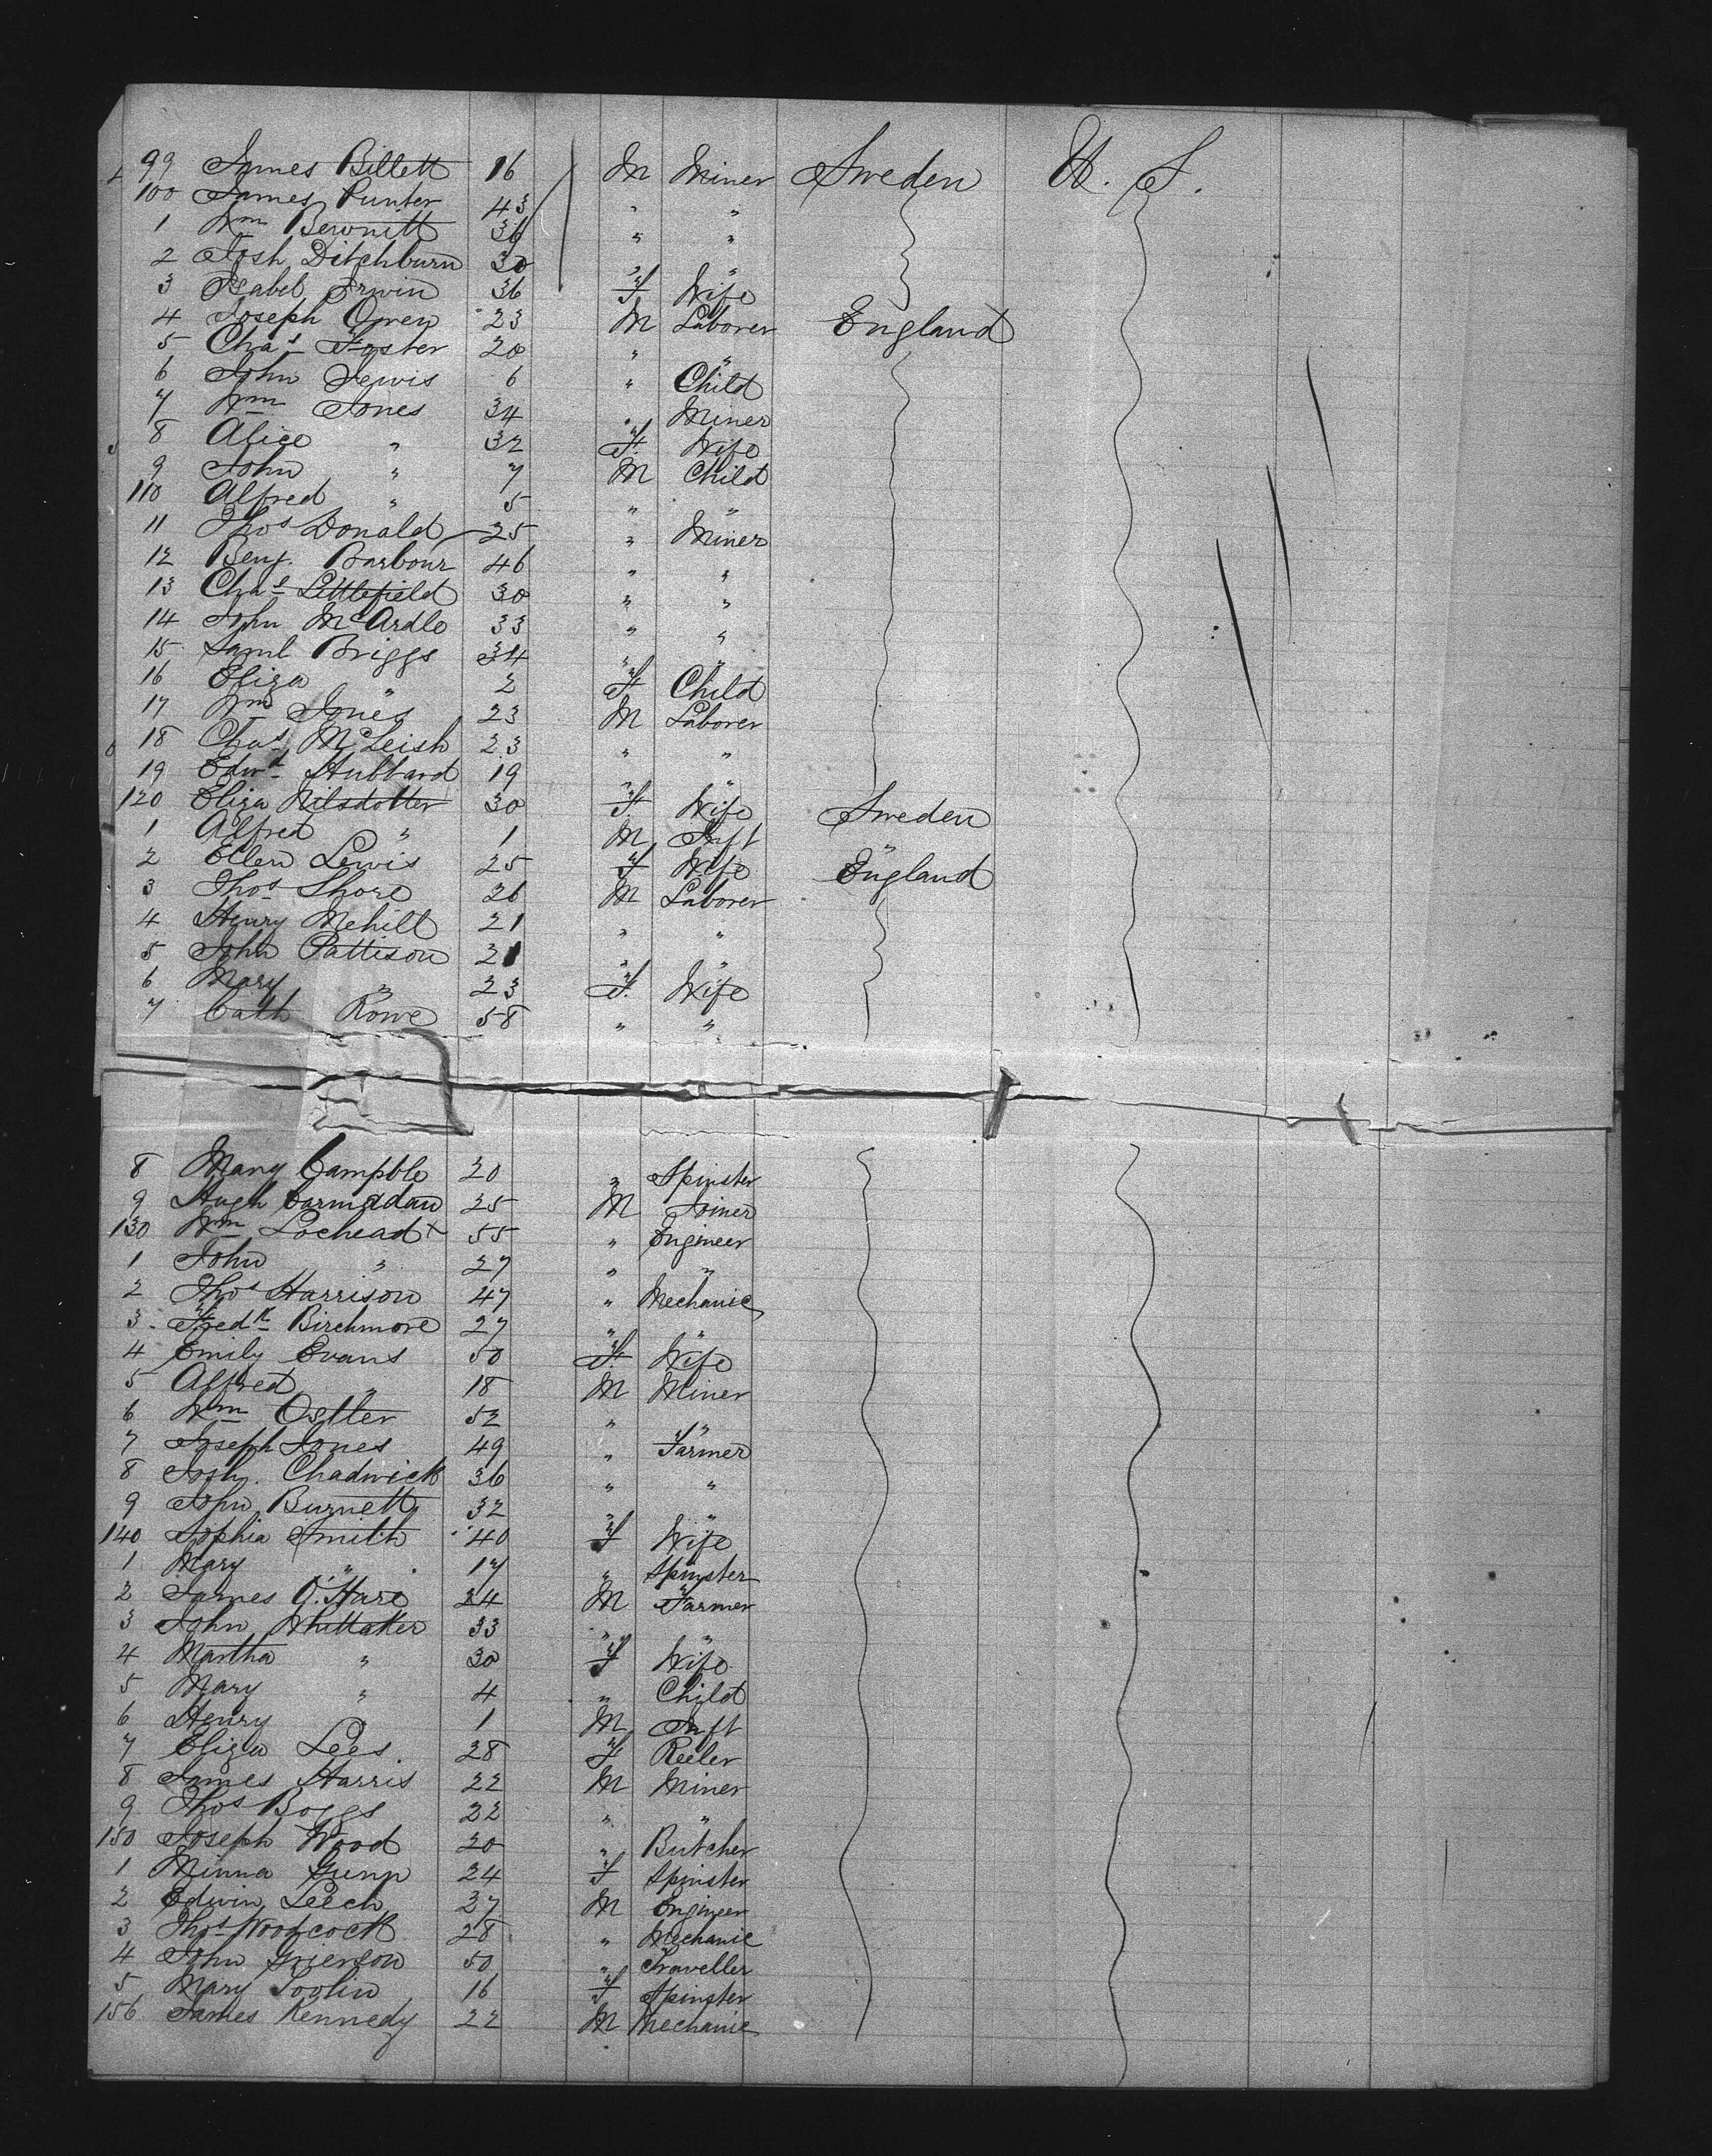 99 James Billett 16 M Miner Sweden U. S.
100 James Punter 43 " "
1 Wm Bewnitt 36 " "
2 Josh Ditchburn 30 " "
3 Isabel Irwin 36 F Wife
4 Joseph Owen 23 M Laborer England
5 Chas Foster 20 " "
6 John Lewis 6 " Child
7 Wm Jones 34 " Miner
8 Alice " 32 F. Wife
9 John " 7 M Child
110 Alfred " 5 " "
11 Thos Donald 25 " Miner
12 Benj. Barbour 46 " "
13 Chas Littlefield 30 " "
14 John McArdle 33 " "
15 Saml Briggs 34 " "
16 Eliza " 2 F. Child
17 Wm Jones 23 M Laborer
18 Chas McLeish 23 " "
19 Edwd Hubbard 19 " "
120 Eliza Nilsdotter 30 F. Wife Sweden
1 Alfred " 1 M Inft "
2 Ellen Lewis 25 F Wife England
3 Thos Shore 26 M Laborer
4 Henry Mehill 21 " "
5 John Pattison 21 " "
6 Mary " 23 F. Wife
7 Cath Rowe 58 " "
8 Mary Campble 20 " Spinster
9 Hugh Carmadan 25 M Joiner
130 Wm Lochead 55 " Engineer
1 John " 27 " "
2 Thos Harrison 47 " Mechanic
3 Fredk Birchmore 27 " "
4 Emily Evans 50 F. Wife
5 Alfred " 18 M Miner
6 Wm Ostler 52 " "
7 Joseph Jones 49 " Farmer
8 Josh. Chadwick 36 " "
9 John Burnett 32 " "
140 Sophia Smith 40 F Wife
1 Mary " 17 " Spinster
2 James O'Hare 24 M Farmer
3 John Whittaker 33 " "
4 Martha " 30 F Wife
5 Mary " 4 " Child
6 Henry " 1 M Inft
7 Eliza Lees 28 F Reeler
8 James Harris 22 M Miner
9 Thos Boggs 22 " "
150 Joseph Wood 20 " Butcher
1 Minna Gunn 24 F Spinster
2 Edwin Leech 37 M Engineer
3 Thos Woodcock 28 " Mechanic
4 John Grierson 50 " Traveller
5 Mary Toolin 16 F Spinster
156 James Kennedy 22 M Mechanic